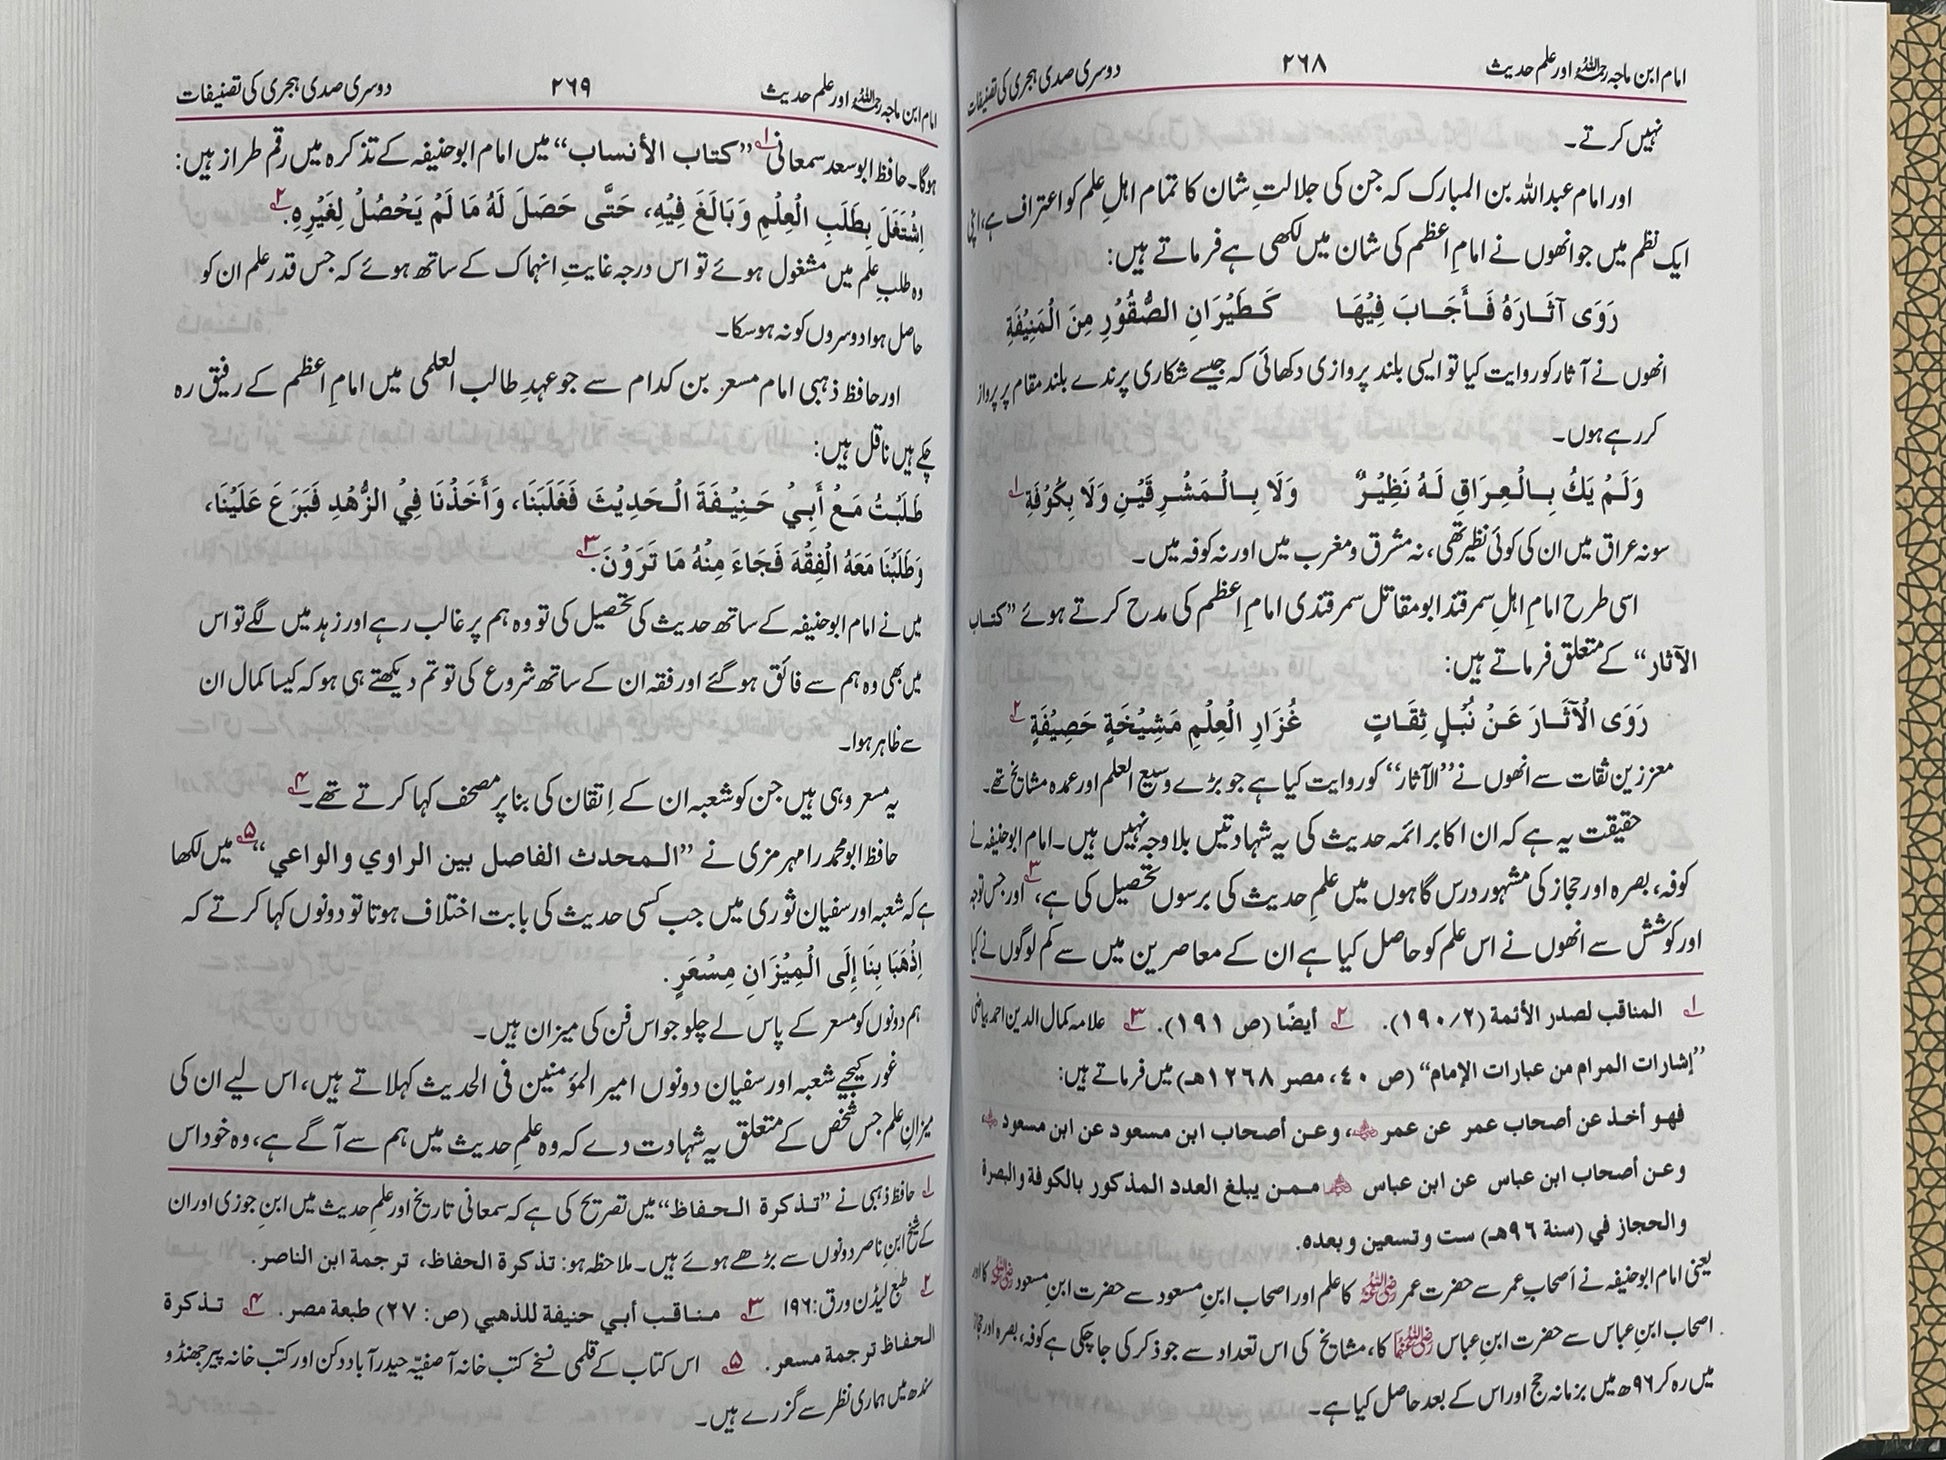 امام ابن ماجہ رحمہ اللہ اور علم حدیث ۲۶۸ دوسری صدی ہجری کی تصنیفات
نہیں کرتے۔
اور امام عبداللہ بن المبارک کہ جن کی جلالتِ شان کا تمام اہلِ علم کو اعتراف ہے، اپنی
ایک نظم میں جو انھوں نے امامِ اعظم کی شان میں لکھی ہے فرماتے ہیں:
رَوَى آثَارَهُ فَأَجَابَ فِيْهَا كَطَيْرَانِ الصُّقُوْرِ مِنَ الْمَنِيْفَةِ
انھوں نے آثار کو روایت کیا تو ایسی بلند پروازی دکھائی کہ جیسے شکاری پرندے بلند مقام پر پرواز
کر رہے ہوں۔
وَلَمْ يَكُ بِالْعِرَاقِ لَهُ نَظِيْرٌ وَلَا بِالْمَشْرِقَيْنِ وَلَا بِكُوْفَةِ ۱
سو نہ عراق میں ان کی کوئی نظیر تھی، نہ مشرق و مغرب میں اور نہ کوفہ میں۔
اسی طرح امامِ اہلِ سمرقند ابو مقاتل سمرقندی امامِ اعظم کی مدح کرتے ہوئے ”کتاب
الآثار“ کے متعلق فرماتے ہیں:
رَوَى الْآثَارَ عَنْ نُبُلٍ ثِقَاتٍ غُزَارِ الْعِلْمِ مَشِيْخَةٍ حَصِيْفَةٍ ۲
معززین ثقات سے انھوں نے ”الآثار“ کو روایت کیا ہے جو بڑے وسیع العلم اور عمدہ مشایخ تھے۔
حقیقت یہ ہے کہ ان اکابر ائمہ حدیث کی یہ شہادتیں بلا وجہ نہیں ہیں۔ امام ابو حنیفہ نے
کوفہ، بصرہ اور حجاز کی مشہور درس گاہوں میں علمِ حدیث کی برسوں تحصیل کی ہے، ۳ اور جس توجہ
اور کوشش سے انھوں نے اس علم کو حاصل کیا ہے ان کے معاصرین میں سے کم لوگوں نے کیا
۱ المناقب لصدر الأئمة (۲/۱۹۰). ۲ أيضًا (ص ۱۹۱). ۳ علامہ کمال الدین احمد بیاضی
”إشارات المرام من عبارات الإمام“ (ص ۴۰، مصر ۱۲۶۸هـ) میں فرماتے ہیں:
فهو أخذ عن أصحاب عمر عن عمر ؓ، وعن أصحاب ابن مسعود عن ابن مسعود ؓ،
وعن أصحاب ابن عباس عن ابن عباس ؓ ممن يبلغ العدد المذكور بالكوفة والبصرة
والحجاز في (سنة ۹۶هـ) ست وتسعين وبعده.
یعنی امام ابو حنیفہ نے اَصحابِ عمر سے حضرت عمر رضی اللہ عنہ کا علم اور اصحاب ابنِ مسعود سے حضرت ابنِ مسعود رضی اللہ عنہ کا اور
اصحاب ابنِ عباس سے حضرت ابنِ عباس رضی اللہ عنہما کا، مشایخ کی اس تعداد سے جو ذکر کی جا چکی ہے کوفہ، بصرہ اور حجاز
میں رہ کر ۹۶ھ میں بزمانہ حج اور اس کے بعد حاصل کیا ہے۔
امام ابن ماجہ رحمہ اللہ اور علم حدیث ۲۶۹ دوسری صدی ہجری کی تصنیفات
ہوگا۔ حافظ ابو سعد سمعانی ۱ ”کتاب الأنساب“ میں امام ابو حنیفہ کے تذکرہ میں رقم طراز ہیں:
اِشْتَغَلَ بِطَلَبِ الْعِلْمِ وَبَالَغَ فِيْهِ، حَتَّى حَصَلَ لَهُ مَا لَمْ يَحْصُلْ لِغَيْرِهِ. ۲
وہ طلبِ علم میں مشغول ہوئے تو اس درجہ غایتِ انہماک کے ساتھ ہوئے کہ جس قدر علم ان کو
حاصل ہوا دوسروں کو نہ ہو سکا۔
اور حافظ ذہبی امام مسعر بن کدام سے جو عہدِ طالب العلمی میں امامِ اعظم کے رفیق رہ
چکے ہیں ناقل ہیں:
طَلَبْتُ مَعْ أَبِيْ حَنِيْفَةَ الْحَدِيْثَ فَغَلَبَنَا، وَأَخَذْنَا فِيْ الزُّهْدِ فَبَرَعَ عَلَيْنَا،
وَطَلَبْنَا مَعَهُ الْفِقْهَ فَجَاءَ مِنْهُ مَا تَرَوْنَ. ۳
میں نے امام ابو حنیفہ کے ساتھ حدیث کی تحصیل کی تو وہ ہم پر غالب رہے اور زہد میں لگے تو اس
میں بھی وہ ہم سے فائق ہو گئے اور فقہ ان کے ساتھ شروع کی تو تم دیکھتے ہی ہو کہ کیسا کمال ان
سے ظاہر ہوا۔
یہ مسعر وہی ہیں جن کو شعبہ ان کے اِتقان کی بنا پر مصحف کہا کرتے تھے۔ ۴
حافظ ابو محمد رامہرمزی نے ”المحدث الفاصل بين الراوي والواعي“ ۵ میں لکھا
ہے کہ شعبہ اور سفیان ثوری میں جب کسی حدیث کی بابت اختلاف ہوتا تو دونوں کہا کرتے کہ
اِذْهَبَا بِنَا إِلَى الْمِيْزَانِ مِسْعَرٍ.
ہم دونوں کو مسعر کے پاس لے چلو جو اس فن کی میزان ہیں۔
غور کیجیے شعبہ اور سفیان دونوں امیر المؤمنین فی الحدیث کہلاتے ہیں، اس لیے ان کی
میزانِ علم جس شخص کے متعلق یہ شہادت دے کہ وہ علمِ حدیث میں ہم سے آگے ہے، وہ خود اس
۱ حافظ ذہبی نے ”تذكرة الحفاظ“ میں تصریح کی ہے کہ سمعانی تاریخ اور علم حدیث میں ابنِ جوزی اور ان
کے شیخ ابنِ ناصر دونوں سے بڑھے ہوئے ہیں۔ ملاحظہ ہو: تذكرة الحفاظ، ترجمة ابن الناصر.
۲ طبع لیڈن ورق: ۱۹۶ ۳ مناقب أبي حنيفة للذهبي (ص: ۲۷) طبعة مصر. ۴ تذكرة
الحفاظ ترجمة مسعر. ۵ اس کتاب کے قلمی نسخے کتب خانہ آصفیہ حیدر آباد دکن اور کتب خانہ پیر جھنڈو
سندھ میں ہماری نظر سے گزرے ہیں۔